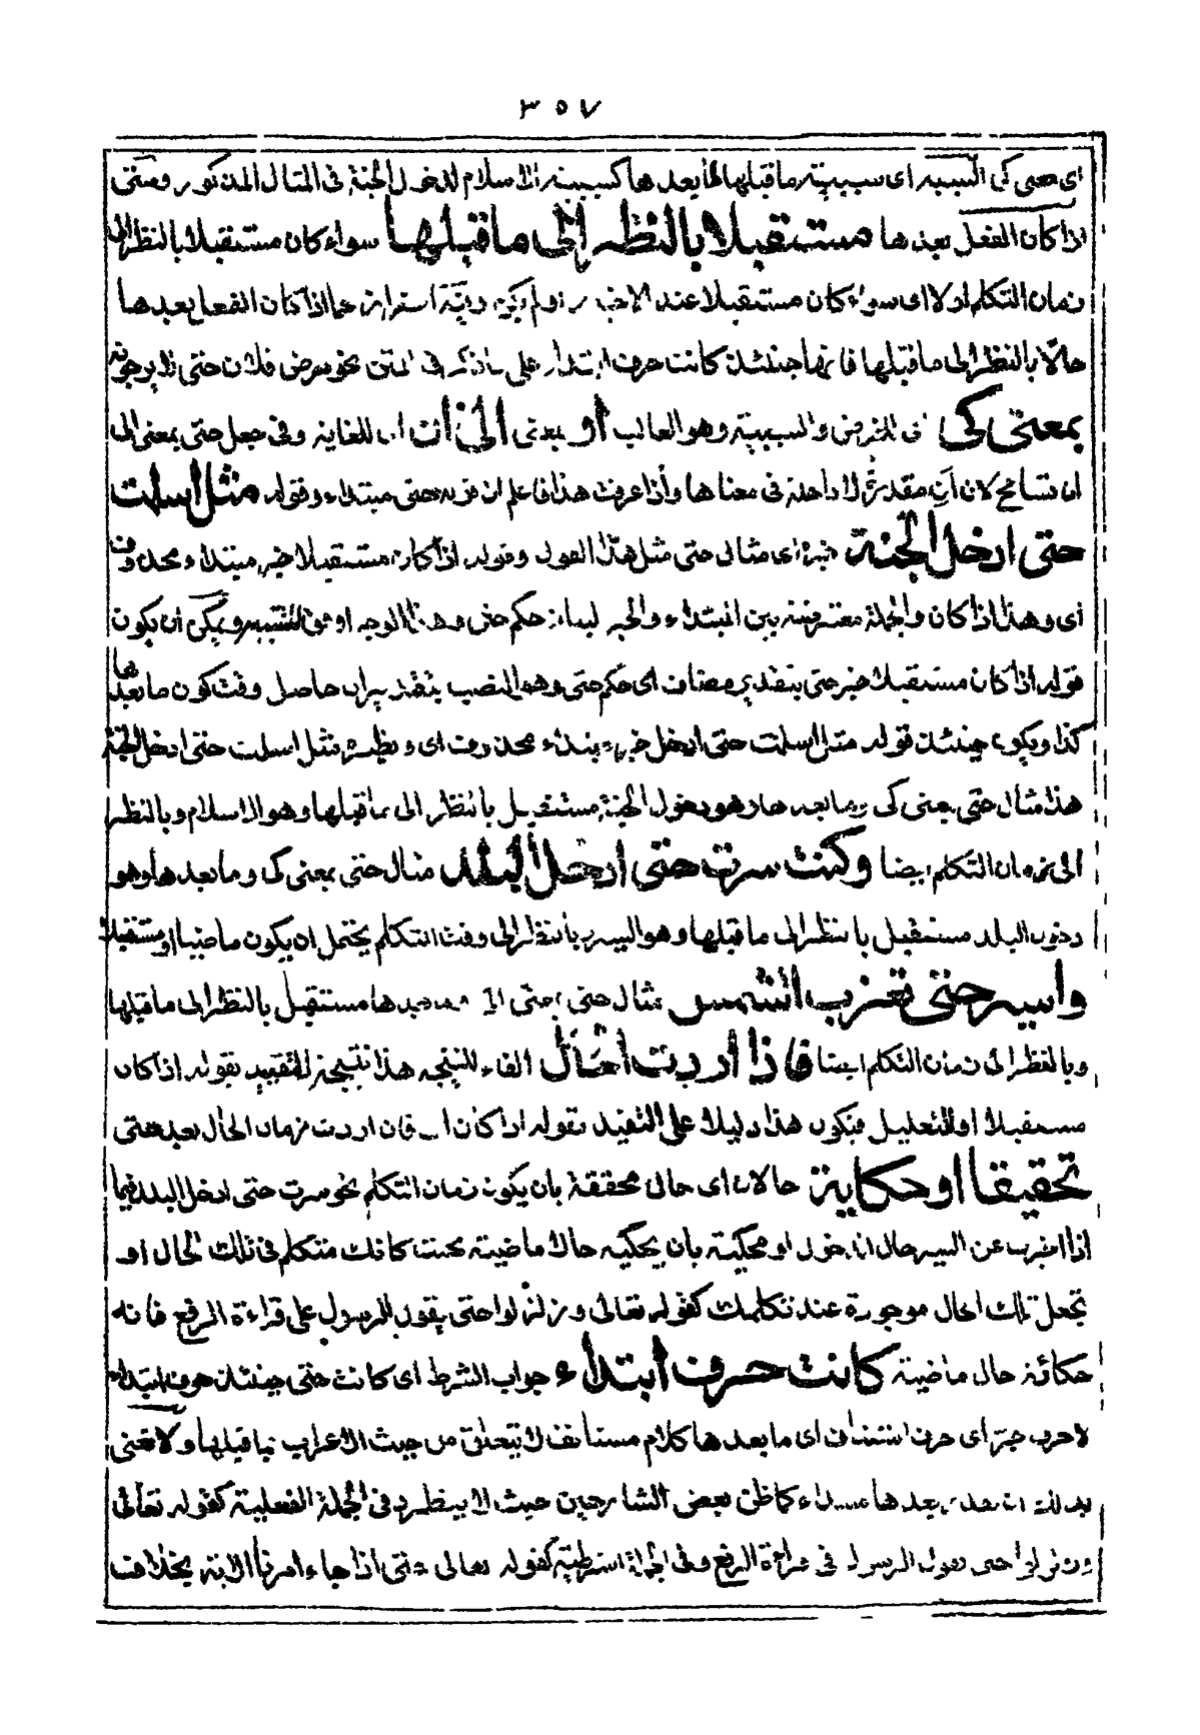 ٣٥٧
اى معنى كى السببية اى سببية ما قبلها لما بعدها كسببية الاسلام لدخول الجنة فى المثال المذكور ومتى
اذا كان الفعل بعدها مستقبلا بالنظر الى ما قبلها سواء كان مستقبلا بالنظر الى
زمان التكلم اولا اى سواء كان مستقبلا عند الاخبار اولم يكن احتراز عما اذا كان الفعل بعدها
حالا بالنظر الى ما قبلها فانها حينئذ كانت حرف ابتداء على ما ذكر فى المتن نحو مرض فلان حتى لا يرجونه
بمعنى كى فى الغرض والسببية وهو الغالب أو بمعنى الى ان اى للغاية وفى جعل حتى بمعنى الى
ان تسامح لان أن مقدرة لا داخلة فى معناها واذا عرفت هذا فاعلم ان قوله حتى مبتداء وقوله مثل اسلمت
حتى ادخل الجنة خبره اى مثال حتى مثل هذا القول وقوله اذا كان مستقبلا خبر مبتداء محذوف
اى وهذا اذا كان والجملة معترضة بين المبتداء والخبر لبيان حكم حتى وهذا الوجه اوفق للتنبيه ويمكن ان يكون
قوله اذا كان مستقبلا خبر حتى بتقدير مضاف اى حكم حتى وهو النصب بتقدير ان حاصل وقت كون ما بعدها
كذا ويكون حينئذ قوله مثل اسلمت حتى ادخل خبر مبتداء محذوف اى ونظيره مثل اسلمت حتى ادخل الجنة
هذا مثال حتى بمعنى كى وما بعدها وهو دخول الجنة مستقبل بالنظر الى ما قبلها وهو الاسلام وبالنظر
الى زمان التكلم ايضا وكنت سرت حتى ادخل البلد مثال حتى بمعنى كى وما بعدها وهو
دخول البلد مستقبل بالنظر الى ما قبلها وهو السير بالنظر الى وقت التكلم يحتمل ان يكون ماضيا او مستقبلا
واسير حتى تغرب الشمس مثال حتى بمعنى الى ما بعدها مستقبل بالنظر الى ما قبلها
وبالنظر الى زمان التكلم ايضا فاذا اردت الحال الفاء للنتيجة هذا نتيجة لتقييد بقوله اذا كان
مستقبلا او للتعليل فيكون هذا دليلا على التقييد بقوله اذا كان اى فان اردت زمان الحال بعد حتى
تحقيقا او حكاية حالات اى حالى محققة بان يكون زمان التكلم نحو سرت حتى ادخل البلد فيما
اذا اخبرت عن السير حال الدخول او محكية بان يحكيه حالا ماضية بحيث كانك متكلم فى ذلك الحال او
تجعل تلك الحال موجودة عند تكلمك كقوله تعالى وزلزلوا حتى يقول الرسول على قراءة الرفع فانه
حكاية حال ماضية كانت حرف ابتداء جواب الشرط اى كانت حتى حينئذ حرف ابتداء
لا حرف جر اى حرف استئناف اى ما بعدها كلام مستأنف لا يتعلق من حيث الاعراب بما قبلها ولا تعنى
بعدها كما ظن بعض الشارحين حيث لا ينظر فى الجملة الفعلية كقوله تعالى
وزلزلوا حتى يقول الرسول فى قراءة الرفع وفى الجملة الشرطية كقوله تعالى حتى اذا جاء امرنا الاية بخلاف